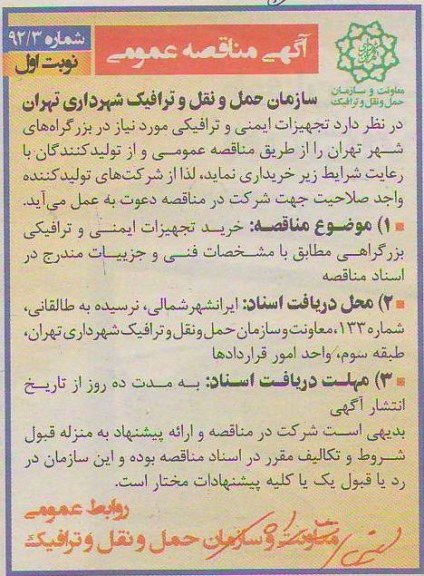 شماره ۹۲/۳
نوبت اول
آگهی مناقصه عمومی
معاونت و سازمان
حمل و نقل و ترافیک
سازمان حمل و نقل و ترافیک شهرداری تهران
در نظر دارد تجهیزات ایمنی و ترافیکی مورد نیاز در بزرگراه‌های
شهر تهران را از طریق مناقصه عمومی و از تولیدکنندگان با
رعایت شرایط زیر خریداری نماید، لذا از شرکت‌های تولیدکننده
واجد صلاحیت جهت شرکت در مناقصه دعوت به عمل می‌آید.
۱) موضوع مناقصه: خرید تجهیزات ایمنی و ترافیکی
بزرگراهی مطابق با مشخصات فنی و جزییات مندرج در
اسناد مناقصه
۲) محل دریافت اسناد: ایرانشهرشمالی، نرسیده به طالقانی،
شماره ۱۳۳، معاونت و سازمان حمل و نقل و ترافیک شهرداری تهران،
طبقه سوم، واحد امور قراردادها
۳) مهلت دریافت اسناد: به مدت ده روز از تاریخ
انتشار آگهی
بدیهی است شرکت در مناقصه و ارائه پیشنهاد به منزله قبول
شروط و تکالیف مقرر در اسناد مناقصه بوده و این سازمان در
رد یا قبول یک یا کلیه پیشنهادات مختار است.
روابط عمومی
معاونت و سازمان حمل و نقل و ترافیک